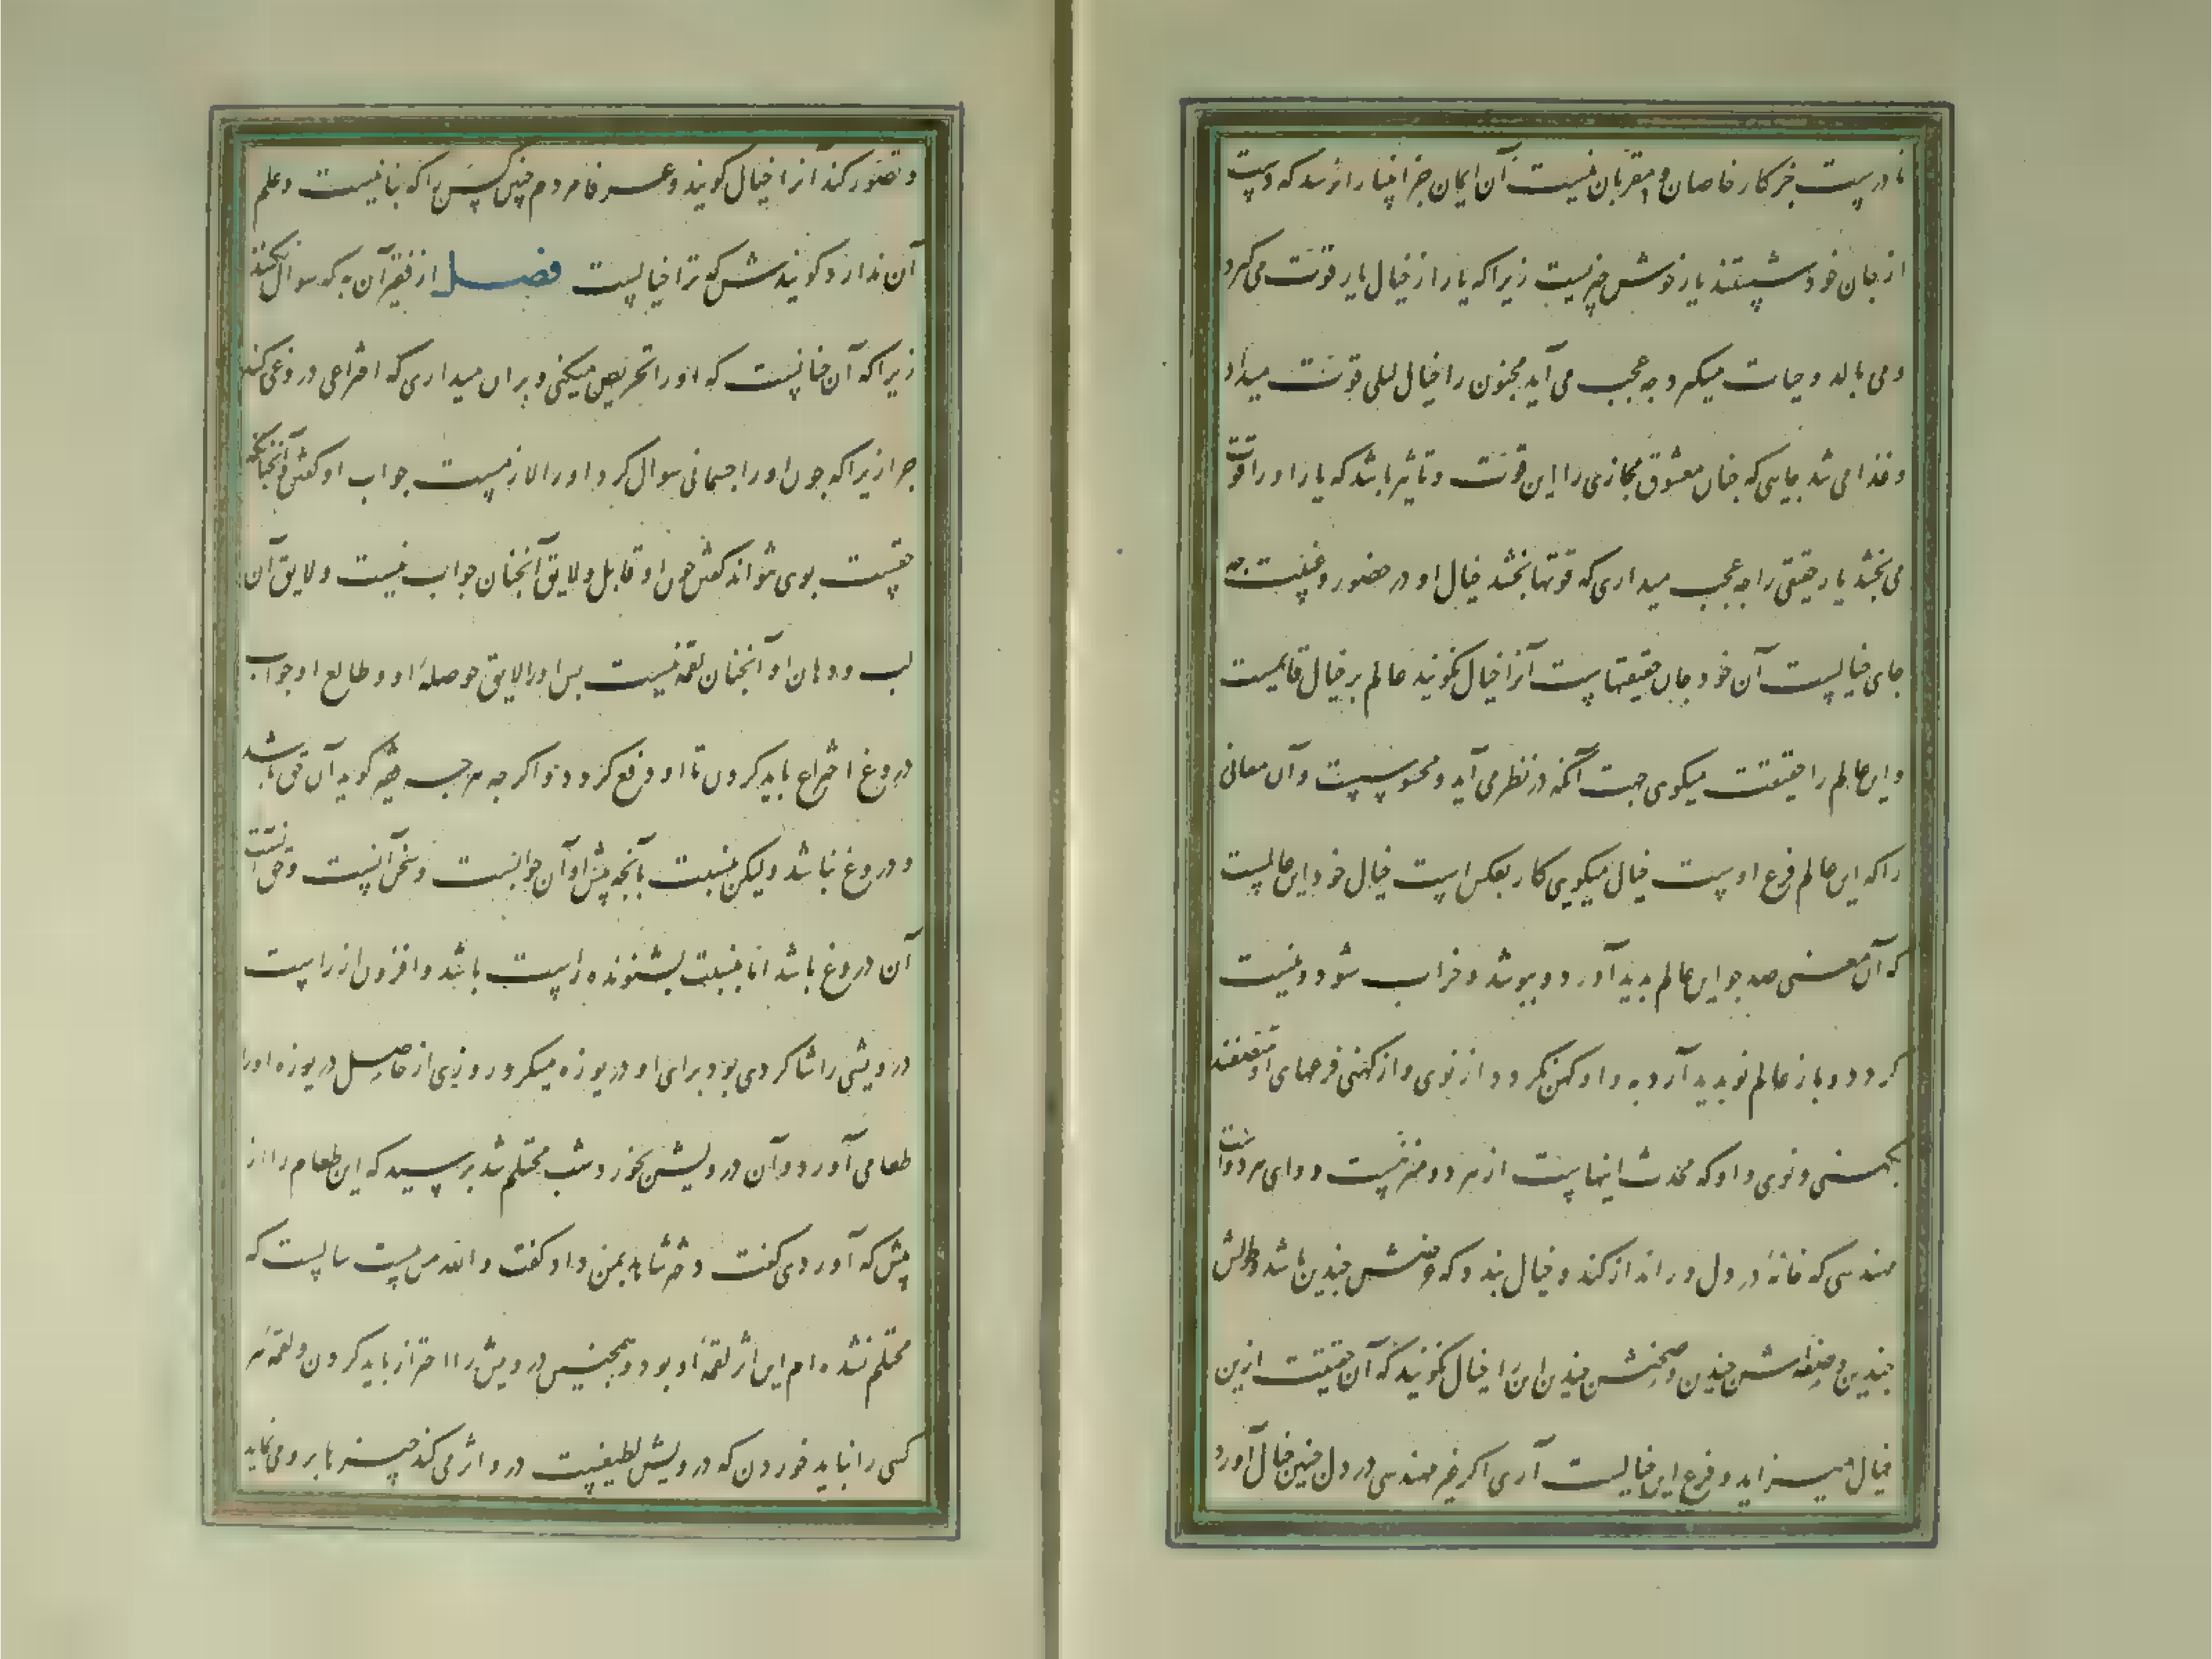 نا درست جز کار خاصان و مقربان نیست آن ایمان جز اخیار را نرسد که دست
از جان خود شستند یار خوش چیزیست زیرا که یار از خیال یار قوت می گیرد
و می بالد و حیات میگیرد چه عجب می آید مجنون را خیال لیلی قوت میداد
و غذا می شد جایی که خیال معشوق مجازی را این قوت و تاثیر باشد که یار او را قوت
می بخشد یار حقیقی را چه عجب میداری که قوتها بخشد خیال او در حضور و غیبت چه
جای خیالیست آن خود جان حقیقتهاست آنرا خیال نگویند عالم بر خیال قایمست
و این عالم را حقیقت میگوی جهت آنکه در نظر می آید و محسوسست و آن معانی
را که این عالم فرع اوست خیال میگویی کار بعکس است خیال خود این عالمست
که آن معنی صد چو این عالم بدید آورد و بپوشد و خراب شود و نیست
گردد و باز عالم نو بدید آرد به و او کهن نگردد از نوی و از کهنی فرعهای او متصفند
بکهنی و نوی و او که محدث اینهاست از هر دو منزهست و ورای هر دو است
مهندسی که خانه در دل در انداز کند و خیال بندد که عرضش چندین باشد و طولش
چندین و صفه اش چندین و صحنش چندین این را خیال نگویند که آن حقیقت ازین
خیال میزاید و فرع این خیالست آری اگر غیر مهندسی در دل چنین خیال آورد
و تصور کند آنرا خیال گویند و عرفا مردم چنین کس را که بنا نیست و علم
آن ندارد گویندش که ترا خیالیست فصل از فقیر آن به که سوال نکنند
زیرا که آن چنانست که او را تحریص میکنی و بران میداری که اختراعی دروغی کند
چرا زیرا که چون او را جسمانی سوال کرد او را لازمست جواب او گفتن و آنچنانکه
حقست بوی نتواند گفتن چون او قابل و لایق آنچنان جواب نیست و لایق آن
لب و دهان او آنچنان لقمه نیست پس او را لایق حوصله او و طالع او جواب
دروغ اختراع باید کردن تا او دفع گردد و اگر چه هر چه فقیر گوید آن حق باشد
و دروغ نباشد ولیکن نسبت بآنچه پیش او آن جوابست و سخن آنست و حق آنست
آن دروغ باشد اما نسبت بشنونده راست باشد و افزون از راست
درویشی را شاگردی بود برای او دریوزه میکرد روزی از حاصل دریوزه او را
طعامی آورد و آن درویش بخورد شب محتلم شد پرسید که این طعام را از
پیش که آوردی گفت دختر شاهد بمن داد گفت والله من بیست سالست که
محتلم نشده ام این اثر لقمه او بود و همچنین درویش را احتراز باید کردن و لقمه هر
کسی را نباید خوردن که درویش لطیفست در و اثر می کند چیزها برو می نماید